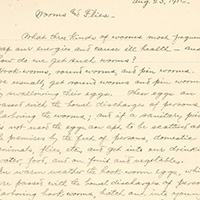 Aug. 23, 1912.
Worms & Flies.
What three kinds of worms most freque
sap our energies and cause ill health - and
how do we get such worms?
Hook worms, round worms, and pin worms.
We usually get round worms and pin worms
by swallowing their eggs. Their eggs are
passed with the bowel discharge of persons
harboring the worms; and if a sanitary pri
is not used the eggs are apt to be scattered
the premises by the feet of persons, domestic
animals, flies, etc., and get into our drink
water, food, and on fruit and vegetables.
In warm weather the hook worm eggs, whic
are passed with the bowel discharges of perso
harboring hook worms, hatch out into young